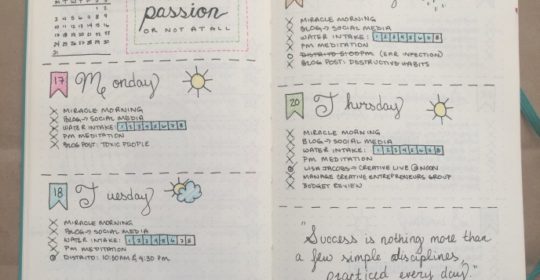 passion
OR NOT AT ALL
17 Monday
MIRACLE MORNING
BLOG → SOCIAL MEDIA
WATER INTAKE: 1 2 3 4 5 6 7 8
PM MEDITATION
BLOG POST: TOXIC PEOPLE
18 Tuesday
MIRACLE MORNING
BLOG → SOCIAL MEDIA
WATER INTAKE: 1 2 3 4 5 6 7 8
PM MEDITATION
DISTRITO: 10:30AM & 4:30 PM
MIRACLE MORNING
BLOG → SOCIAL MEDIA
WATER INTAKE: 1 2 3 4 5 6 7 8
PM MEDITATION
(EAR INFECTION)
BLOG POST: DESTRUCTIVE HABITS
20 Thursday
MIRACLE MORNING
BLOG → SOCIAL MEDIA
WATER INTAKE: 1 2 3 4 5 6 7 8
PM MEDITATION
LISA JACOBS → CREATIVE LIVE @ NOON
MANAGE CREATIVE ENTREPRENEURS GROUP
BUDGET REVIEW
"Success is nothing more than
a few simple disciplines,
practiced every day."